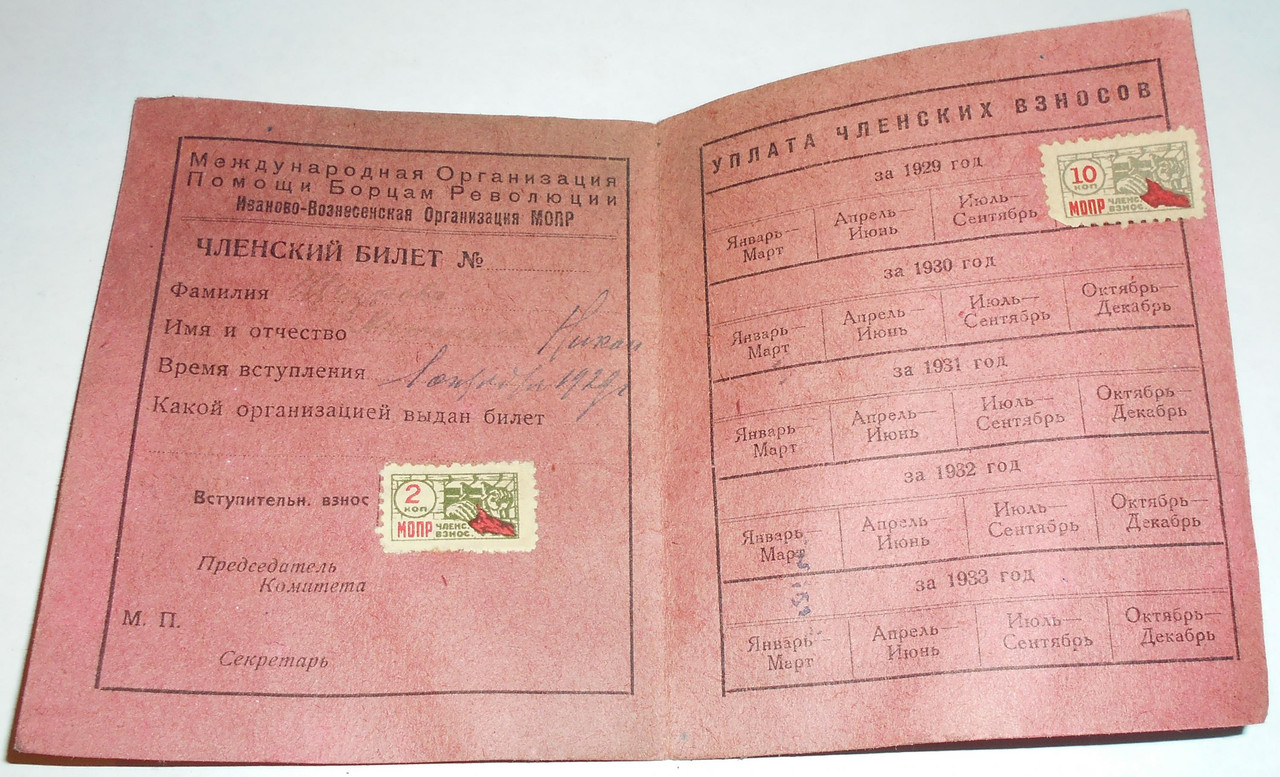 Международная Организация
Помощи Борцам Революции
Иваново-Вознесенская Организация МОПР
ЧЛЕНСКИЙ БИЛЕТ №
Фамилия
Имя и отчество
Время вступления 1929 г
Какой организацией выдан билет
Вступительн. взнос
2
КОП
МОПР ЧЛЕНС.
ВЗНОС.
Председатель
Комитета
М. П.
Секретарь
УПЛАТА ЧЛЕНСКИХ ВЗНОСОВ
за 1929 год
Январь—
Март
Апрель—
Июнь
Июль—
Сентябрь
10
КОП
МОПР ЧЛЕНС.
ВЗНОС.
за 1930 год
Январь—
Март
Апрель—
Июнь
Июль—
Сентябрь
Октябрь—
Декабрь
за 1931 год
Январь—
Март
Апрель—
Июнь
Июль—
Сентябрь
Октябрь—
Декабрь
за 1932 год
Январь—
Март
Апрель—
Июнь
Июль—
Сентябрь
Октябрь—
Декабрь
за 1933 год
Январь—
Март
Апрель—
Июнь
Июль—
Сентябрь
Октябрь—
Декабрь